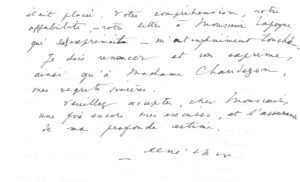 était placé. Votre compréhension, votre
affabilité - votre lettre à Monsieur Lapeyre
qui les exprimait - m'ont infiniment touché.
Je dois renoncer et vous exprime,
ainsi qu'à Madame Chaudezon,
mes regrets sincères.
Veuillez accepter, cher Monsieur,
une fois encore mes excuses, et l'assurance
de ma profonde estime.